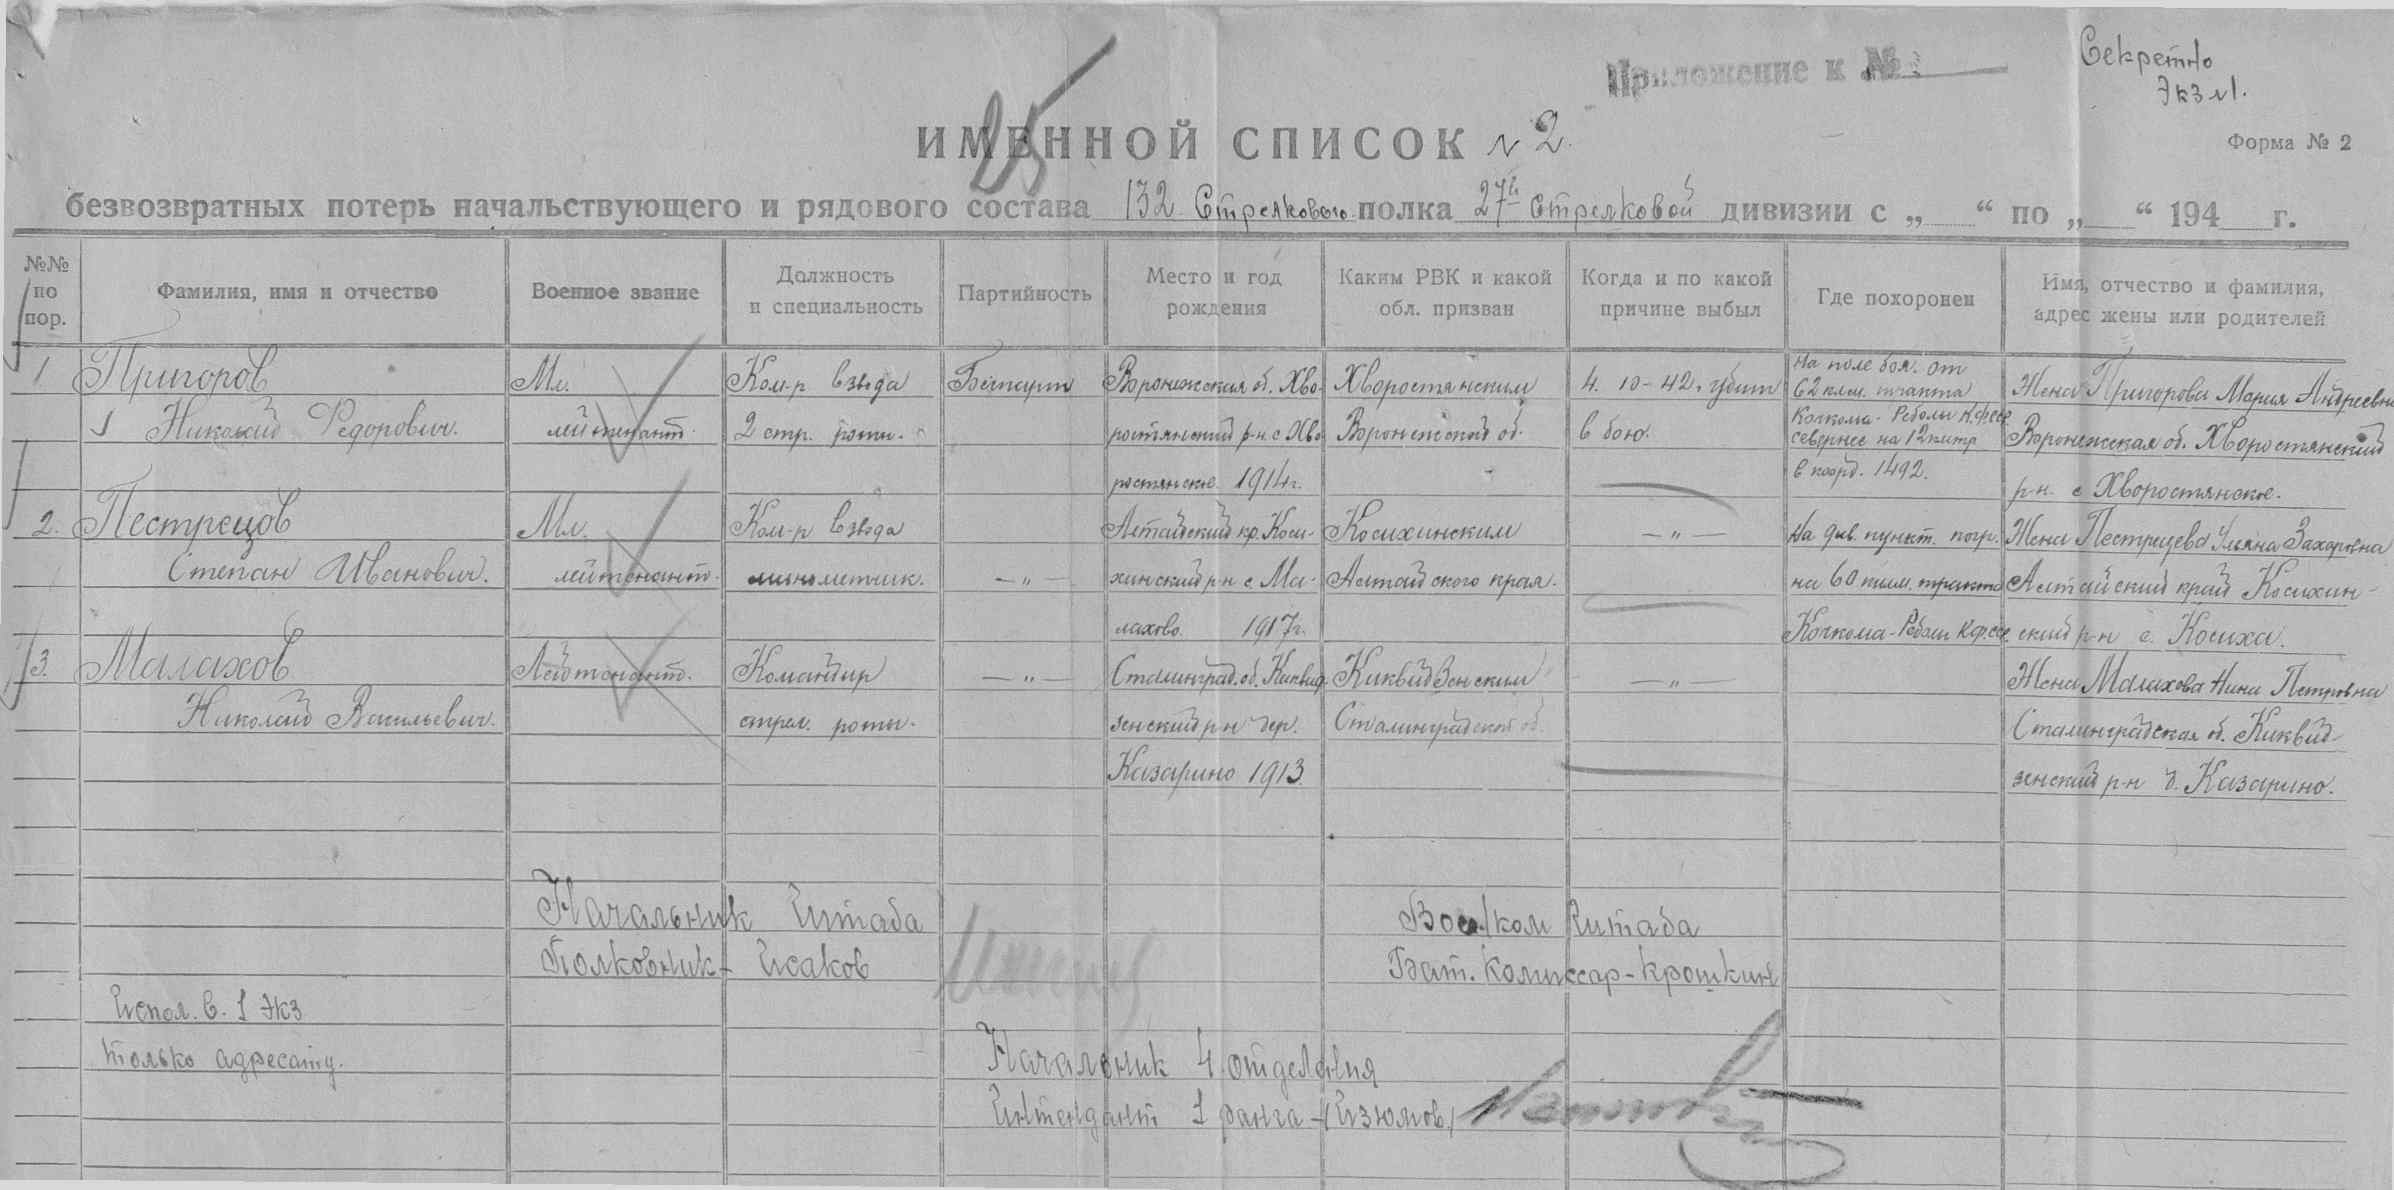 Приложение к №
Секретно
Экз №1.
25
ИМЕННОЙ СПИСОК № 2.
Форма № 2
безвозвратных потерь начальствующего и рядового состава 132 Стрелкового полка 27й стрелковой дивизии с „ “ по „ “ 194 г.
№№ по пор.
Фамилия, имя и отчество
Военное звание
Должность и специальность
Партийность
Место и год рождения
Каким РВК и какой обл. призван
Когда и по какой причине выбыл
Где похоронен
Имя, отчество и фамилия, адрес жены или родителей
1
Пригоров
Николай Федорович.
Мл.
лейтенант.
Ком-р взвода
2 стр. роты.
Беспарт
Воронежская об. Хво-
ростянский р-н. с Хво
ростянское 1914г.
Хворостянским
Воронежской об.
4. 10-42. убит
в бою.
На поле боя. от
62 клм. тракта
Кочкома-Реболы К.Ф.ССР
севернее на 12 клтр
в коорд. 1492.
Жена Пригорова Мария Андреевна
Воронежская об. Хворостянский
р-н. с Хворостянское.
2.
Пестрецов
Степан Иванович.
Мл.
лейтенант.
Ком-р взвода
минометчик.
— „ —
Алтайский кр. Коси-
хинский р-н с. Ма-
лахово. 1917г.
Косихинским
Алтайского края.
— „ —
На див. пункт. погр.
на 60 килм. тракта
Кочкома-Реболы КФССР
Жена Пестрецева Ульяна Захаровна
Алтайский край Косихин-
ский р-н с. Косиха.
3.
Малахов
Николай Васильевич.
Лейтенант.
Командир
стрел. роты.
— „ —
Сталинград. об. Киквид
зенский р-н дер.
Казарино 1913.
Киквидзенским
Сталинградской об.
— „ —
Жена Малахова Нина Петровна
Сталинградская об. Киквид-
зенский р-н д. Казарино.
Начальник Штаба
Полковник - Исаков
Воен/ком Штаба
Бат. Комиссар - Крошкин
Испол. в. 1 Экз
только адресату.
Начальник 4 отделения
Интендант 1 ранга - /Изюмов/